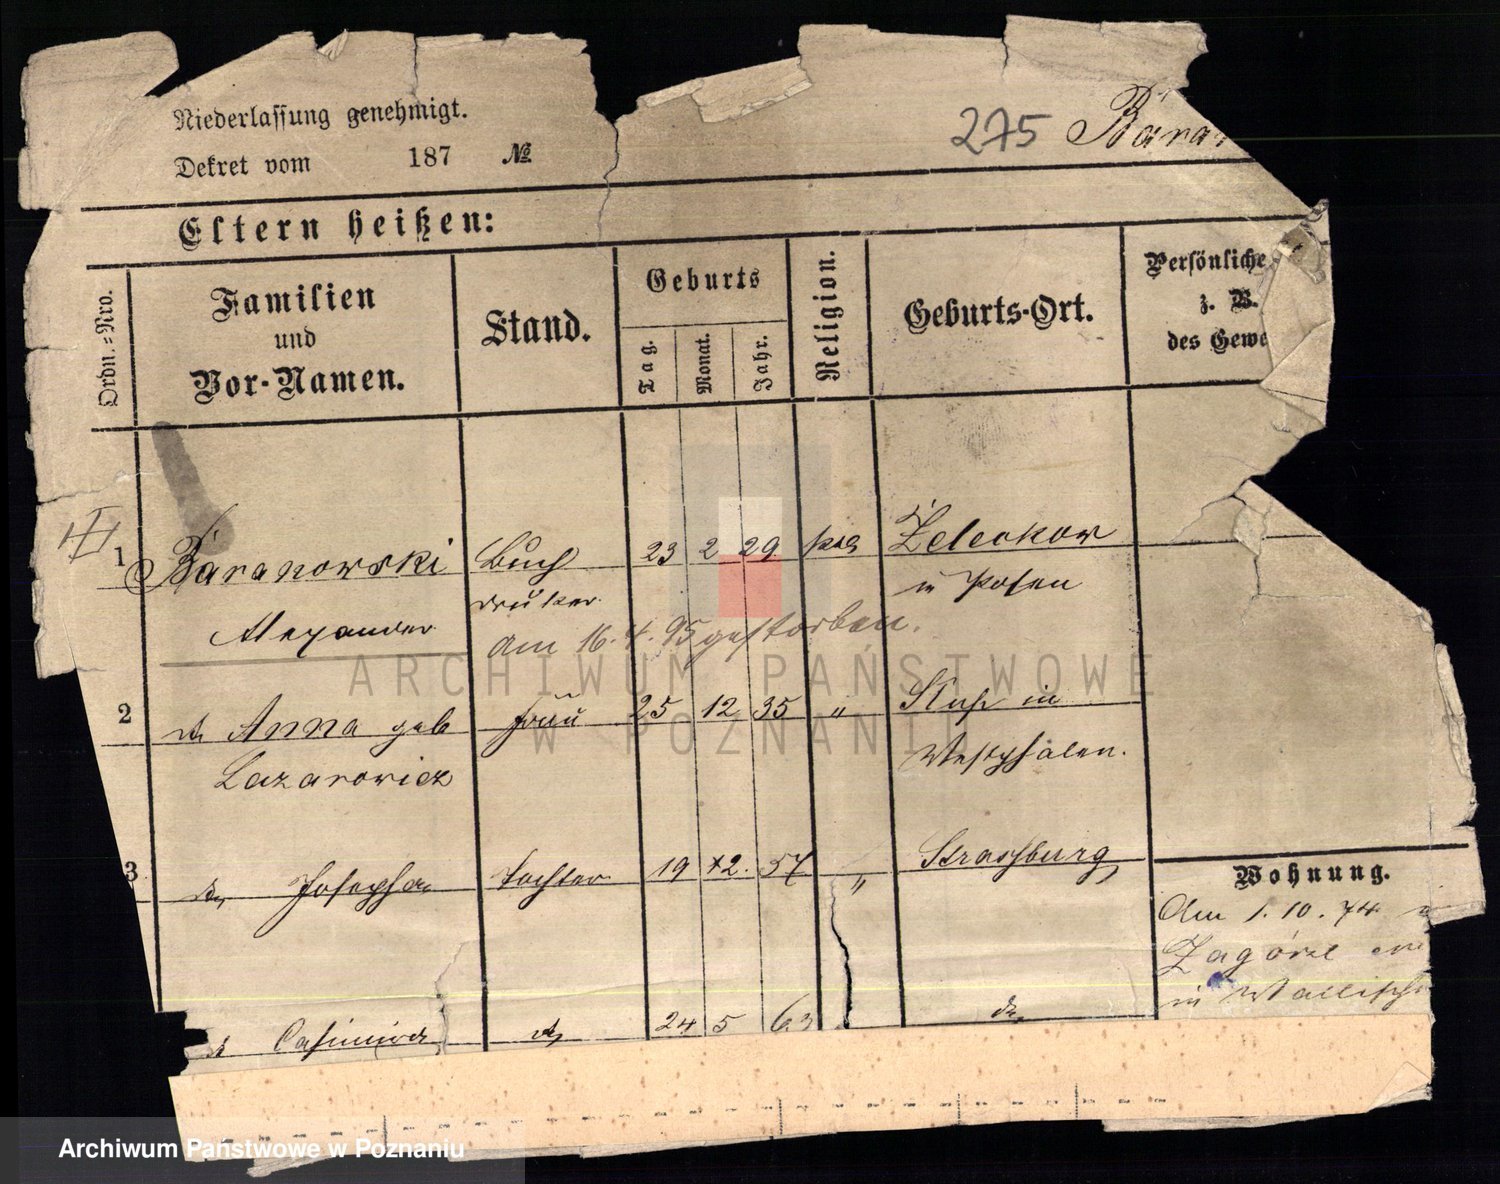 Niederlassung genehmigt.
Dekret vom 187 №
275 Baran
Eltern heißen:
Ordn.-Nro.
Familien und Vor-Namen.
Stand.
Geburts
Tag. Monat. Jahr.
Religion.
Geburts-Ort.
Persönliche
z. B.
des Gewe
1 Baranowski Buch 23 2 29 kat Żeleckow
drucker in Posen
Alexander
am 16. 4. 95 gestorben.
2 do Anna geb Frau 25 12 35 " in
Lazarowicz Westphalen.
3 do Josepha Tochter 19 12. 57 " Strasburg
Wohnung.
Am 1. 10. 74
Zagórze
in Wallisch
Casimira do 24 5 63 do
ARCHIWUM PAŃSTWOWE
W POZNANIU
Archiwum Państwowe w Poznaniu